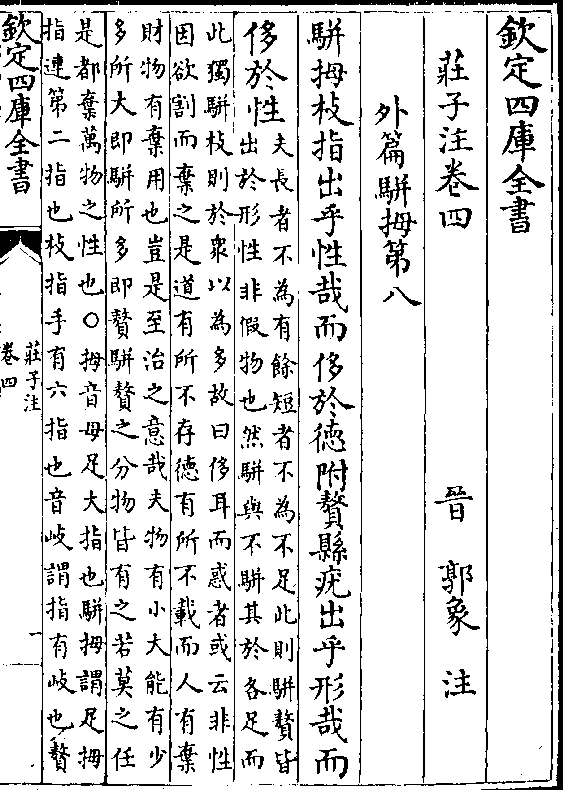 欽定四庫全書
莊子注卷四
晉 郭象 注
外篇駢拇第八
駢拇枝指出乎性哉而侈於德附贅縣疣出乎形哉而
侈於性
夫長者不為有餘短者不為不足此則駢贅皆
出於形性非假物也然駢與不駢其於各足而
此獨駢枝則於衆以為多故曰侈耳而惑者或云非性
因欲割而棄之是道有所不存德有所不載而人有棄
財物有棄用也豈是至治之意哉夫物有小大能有少
多所大即駢所多即贅駢贅之分物皆有之若莫之任
是都棄萬物之性也○拇音母足大指也駢拇謂足拇
指連第二指也枝指手有六指也音岐謂指有岐也贅
欽定四庫全書
莊子注
卷四
一